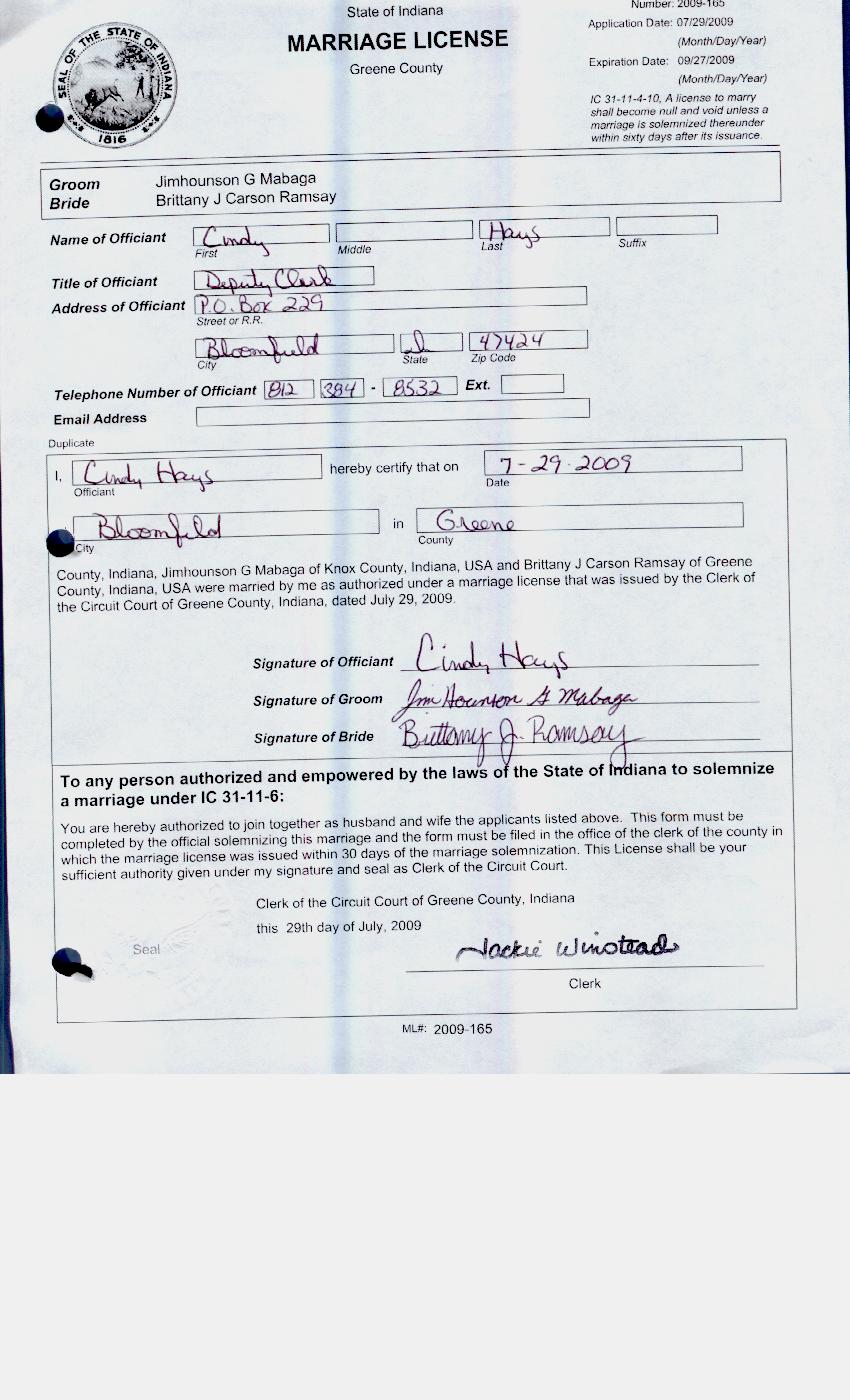 State of Indiana
MARRIAGE LICENSE
Greene County
Number: 2009-165
Application Date: 07/29/2009
(Month/Day/Year)
Expiration Date: 09/27/2009
(Month/Day/Year)
IC 31-11-4-10, A license to marry
shall become null and void unless a
marriage is solemnized thereunder
within sixty days after its issuance.
SEAL OF THE STATE OF INDIANA
1816
Groom Jimhounson G Mabaga
Bride Brittany J Carson Ramsay
Name of Officiant Cindy Hays
First Middle Last Suffix
Title of Officiant Deputy Clerk
Address of Officiant P.O. Box 229
Street or R.R.
Bloomfield 47424
City State Zip Code
Telephone Number of Officiant 812 384 - 8532 Ext.
Email Address
Duplicate
I, Cindy Hays hereby certify that on 7-29-2009
Officiant Date
Bloomfield in Greene
City County
County, Indiana, Jimhounson G Mabaga of Knox County, Indiana, USA and Brittany J Carson Ramsay of Greene
County, Indiana, USA were married by me as authorized under a marriage license that was issued by the Clerk of
the Circuit Court of Greene County, Indiana, dated July 29, 2009.
Signature of Officiant Cindy Hays
Signature of Groom Jim Hounson G Mabaga
Signature of Bride Brittany J. Ramsay
To any person authorized and empowered by the laws of the State of Indiana to solemnize
a marriage under IC 31-11-6:
You are hereby authorized to join together as husband and wife the applicants listed above. This form must be
completed by the official solemnizing this marriage and the form must be filed in the office of the clerk of the county in
which the marriage license was issued within 30 days of the marriage solemnization. This License shall be your
sufficient authority given under my signature and seal as Clerk of the Circuit Court.
Clerk of the Circuit Court of Greene County, Indiana
this 29th day of July, 2009
Seal
Jackie Winstead
Clerk
ML#: 2009-165